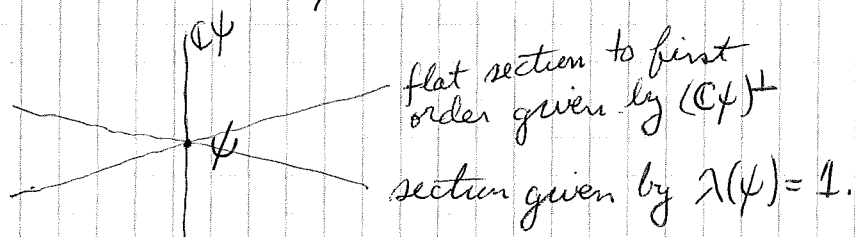 ℂψ
flat section to first
order given by (ℂψ)^⊥
ψ
section given by λ(ψ) = 1.